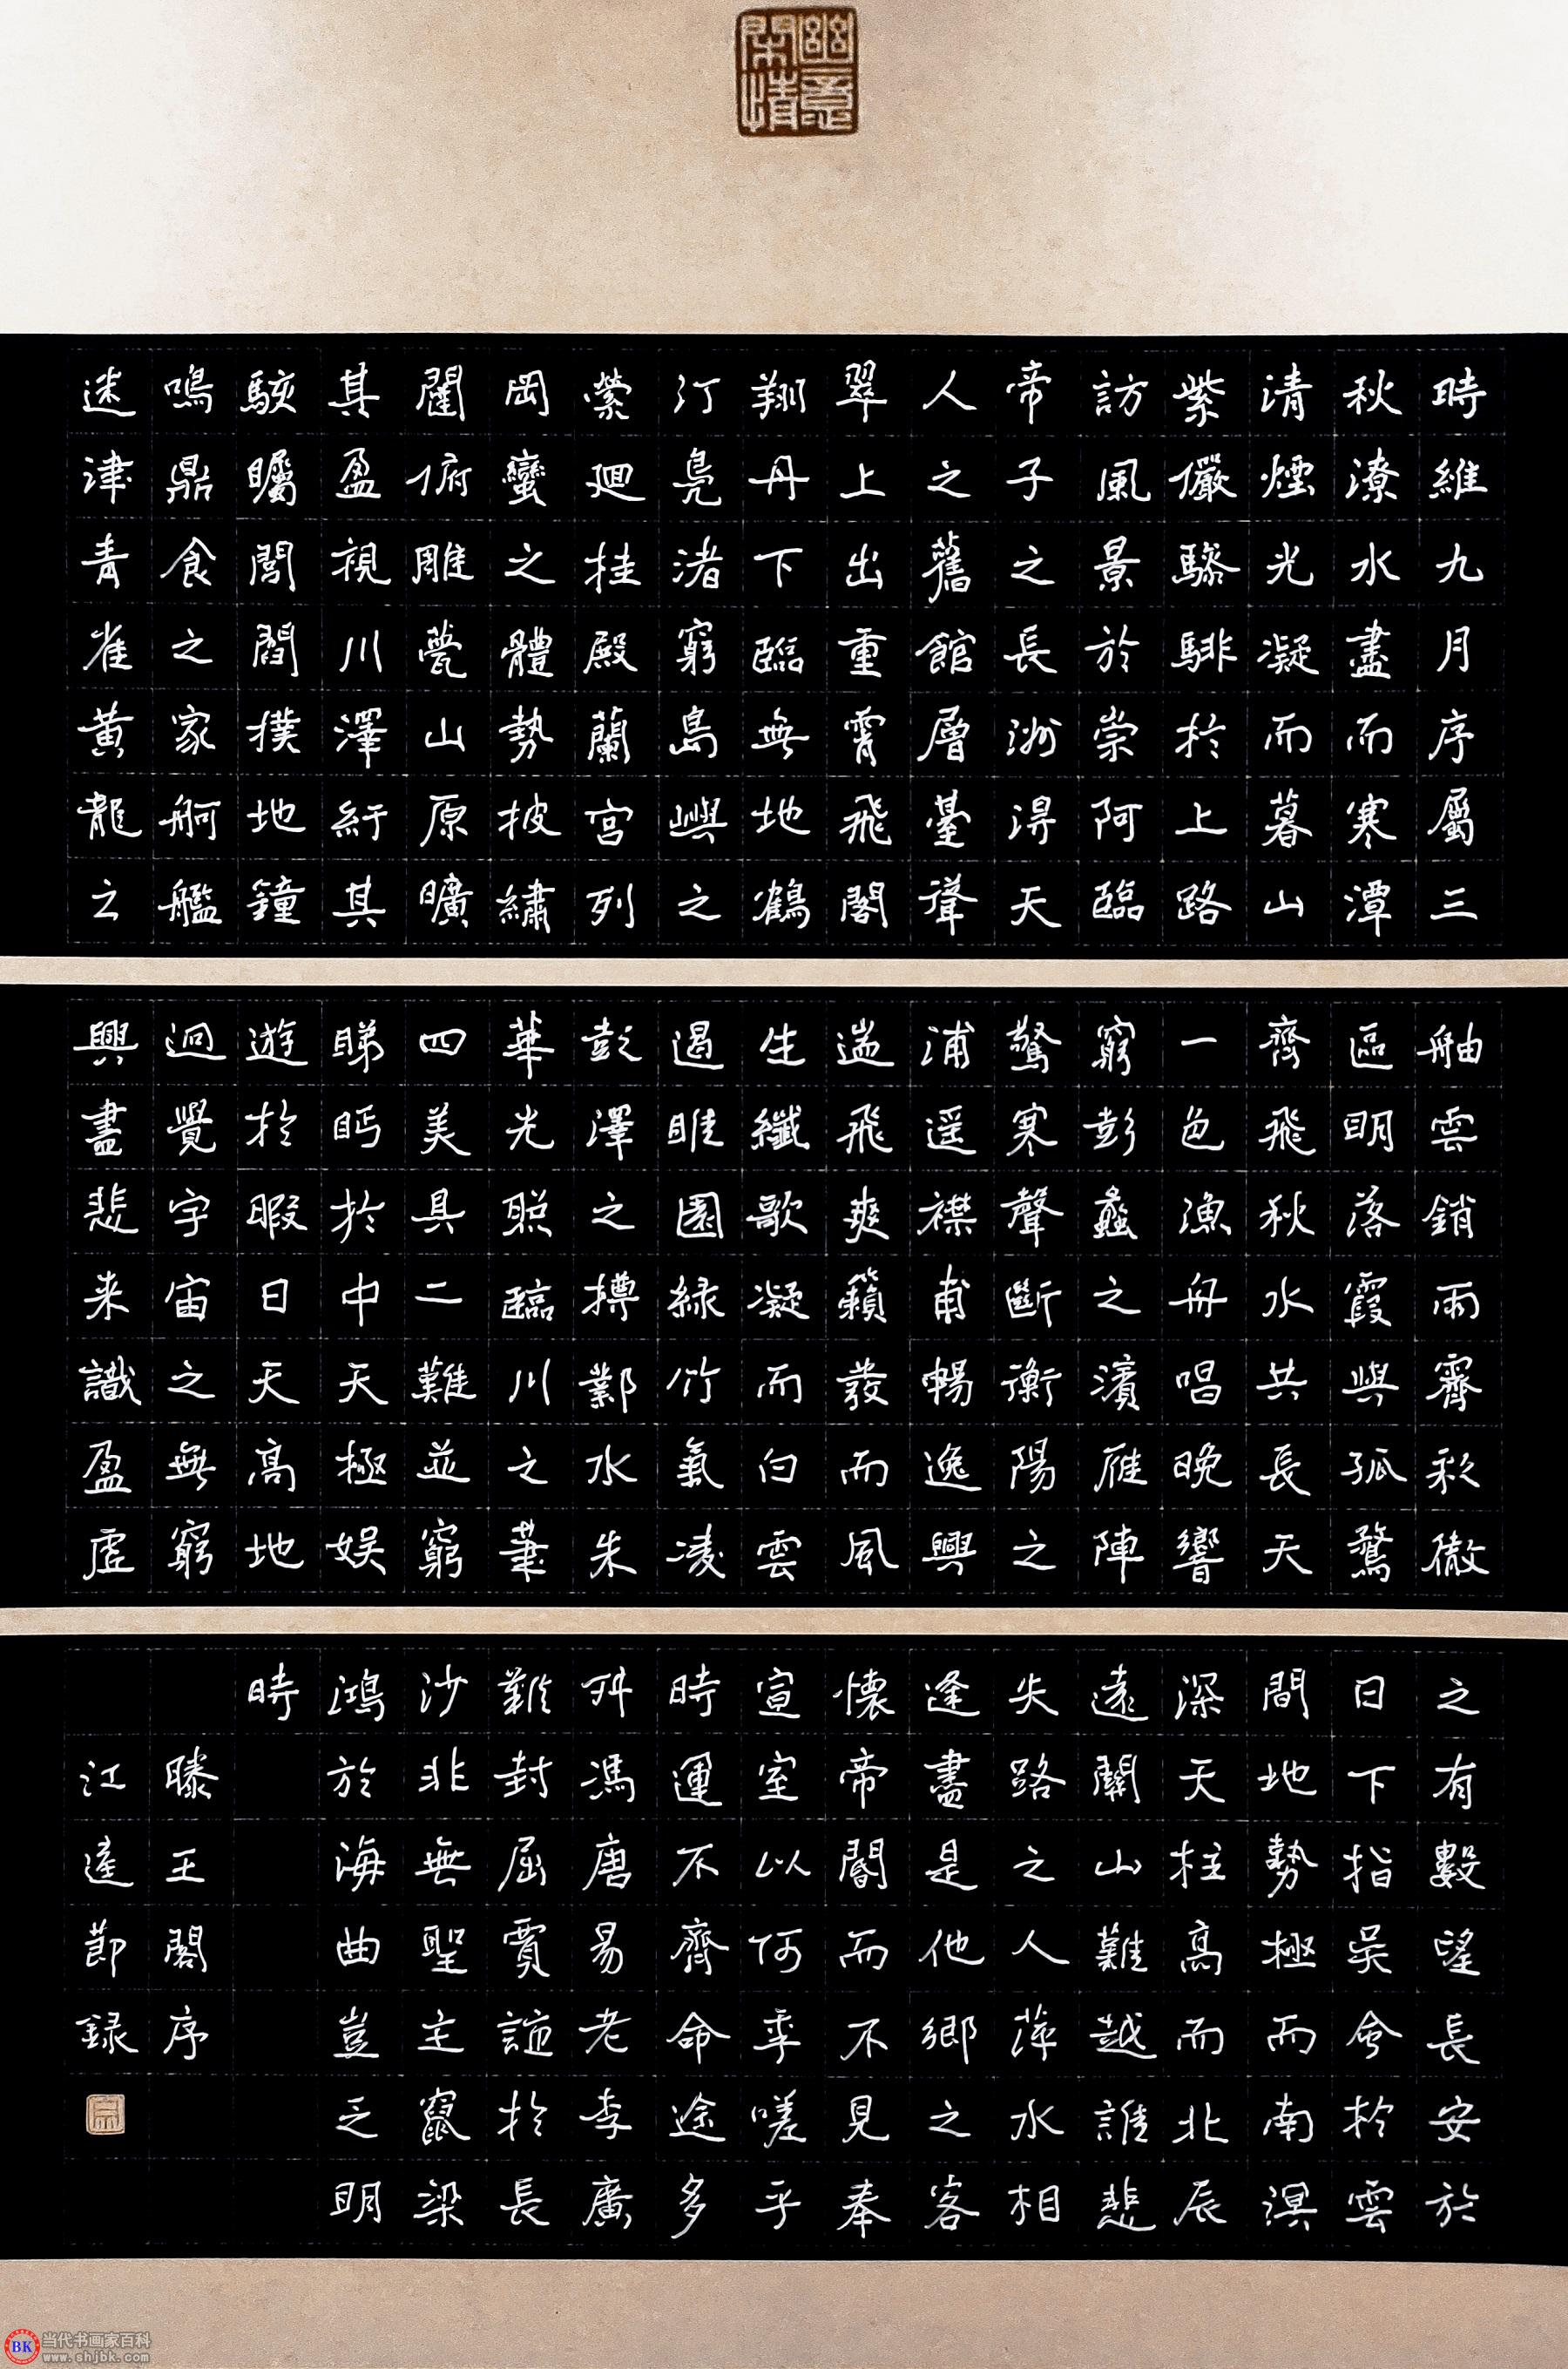 幽意閑情
時維九月序屬三
秋潦水盡而寒潭
清煙光凝而暮山
紫儼驂騑於上路
訪風景於崇阿臨
帝子之長洲得天
人之舊館層臺聳
翠上出重霄飛閣
翔丹下臨無地鶴
汀鳧渚窮島嶼之
縈迴桂殿蘭宮列
岡巒之體勢披繡
闥俯雕甍山原曠
其盈視川澤紆其
駭矚閭閻撲地鐘
鳴鼎食之家舸艦
迷津青雀黃龍之
舳雲銷雨霽彩徹
區明落霞與孤鶩
齊飛秋水共長天
一色漁舟唱晚響
窮彭蠡之濱雁陣
驚寒聲斷衡陽之
浦遥襟甫暢逸興
遄飛爽籟發而風
生纖歌凝而白雲
遏睢園綠竹氣凌
彭澤之樽鄴水朱
華光照臨川之筆
四美具二難並窮
睇眄於中天極娛
遊於暇日天高地
迥覺宇宙之無窮
興盡悲来識盈虛
之有數望長安於
日下指吳會於雲
間地勢極而南溟
深天柱高而北辰
遠關山難越誰悲
失路之人萍水相
逢盡是他鄉之客
懷帝閽而不見奉
宣室以何年嗟乎
時運不齊命途多
舛馮唐易老李廣
難封屈賈誼於長
沙非無聖主竄梁
鴻於海曲豈乏明
時
滕王閣序
江達節録
BK 当代书画家百科
www.shjbk.com